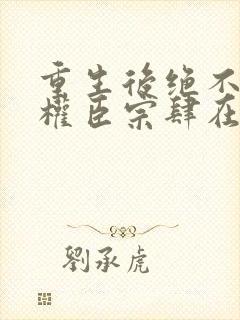 重生後绝不
權臣宗肆在
劉承虎